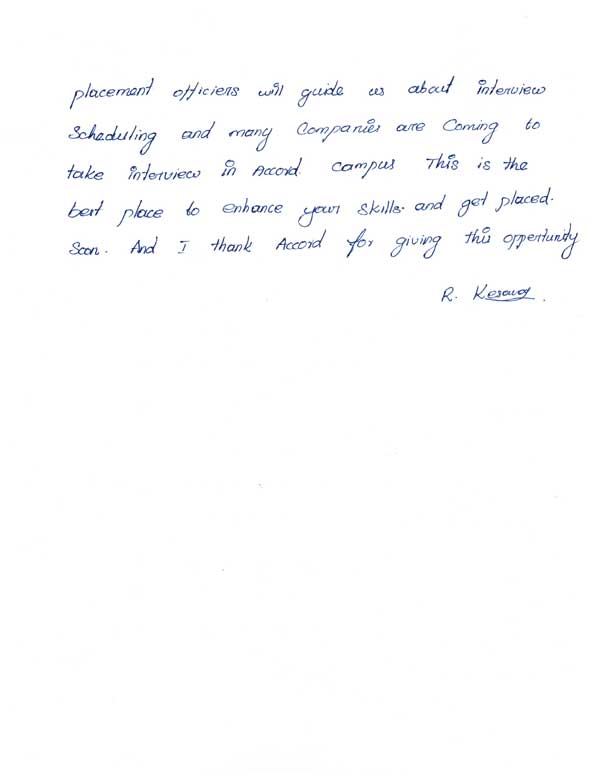 placement officiers will guide us about interview
Scheduling and many Companies are Coming to
take interview in Accord. campus This is the
best place to enhance your skills. and get placed.
Soon. And I thank Accord for giving this oppertunity
R. Kesavan.